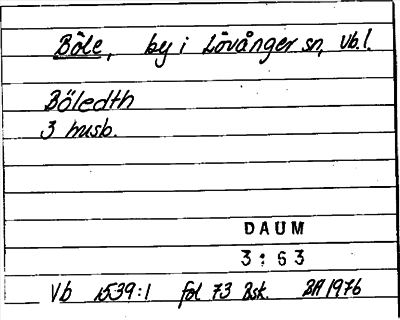 Böle, by i Lövånger sn, Vb.l.
Böledth
3 husb.
DAUM
3:63
Vb 1539:1 fol 73 Bsk. BA 1976